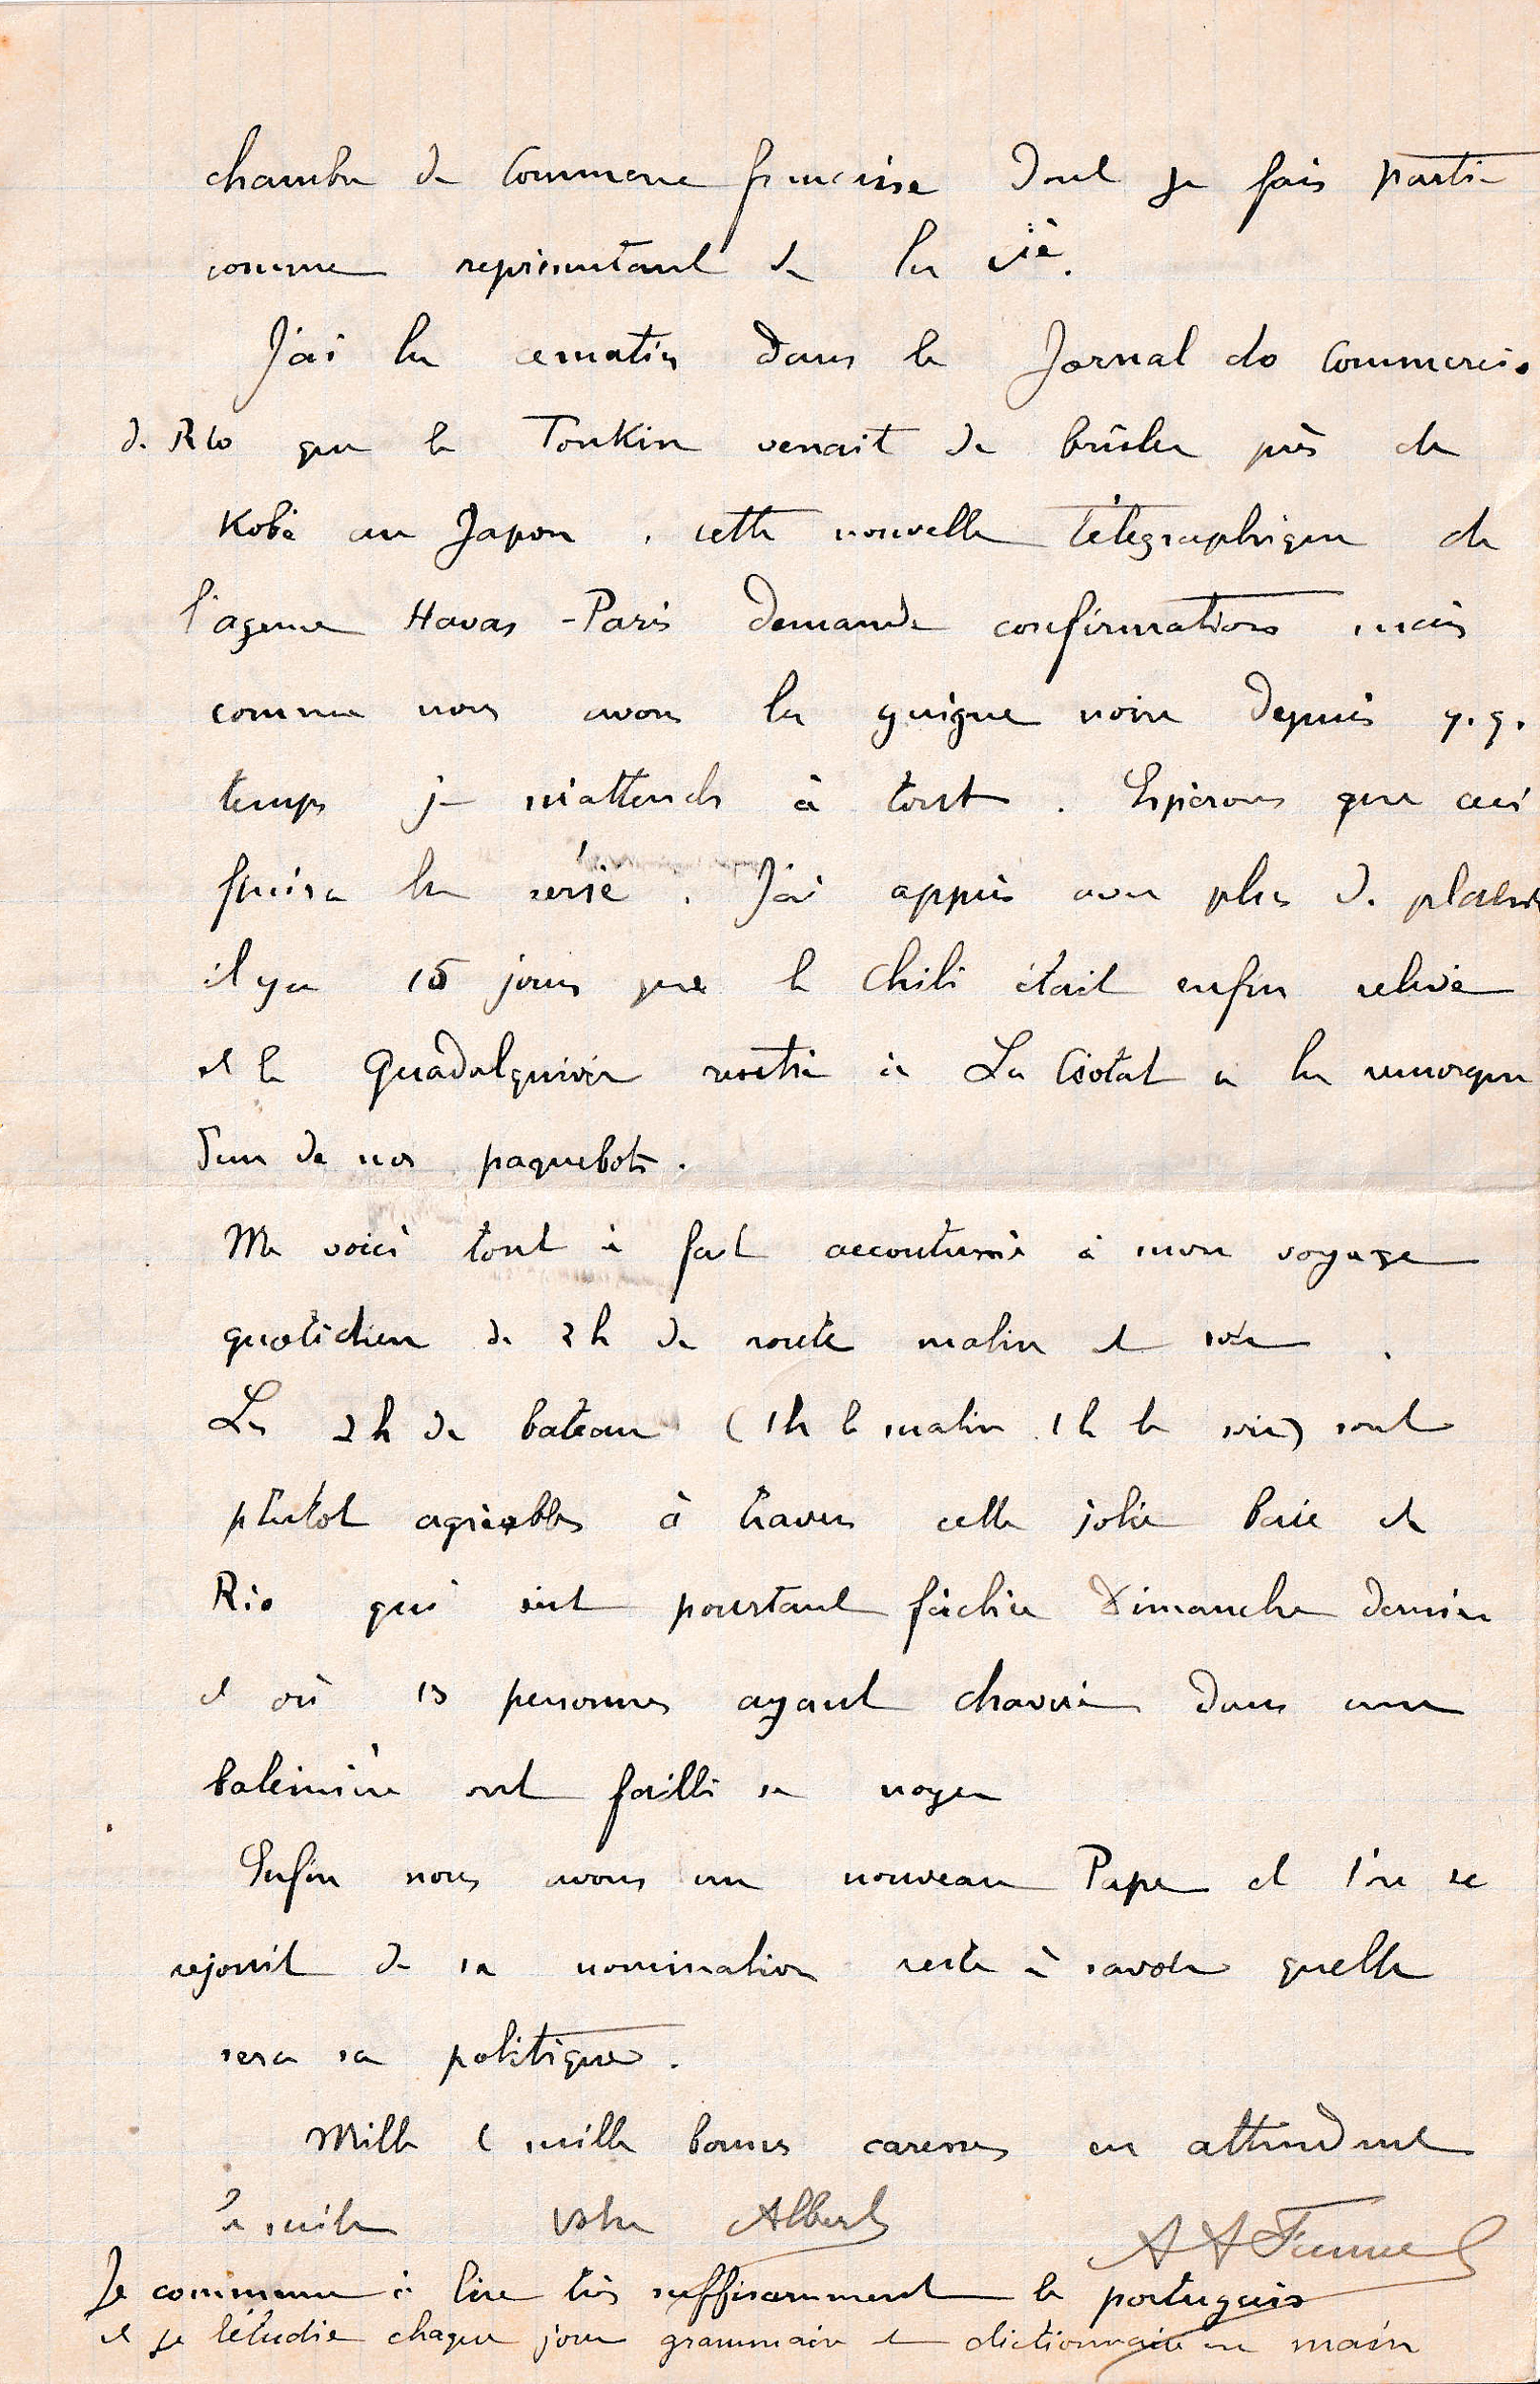 chambre de Commerce française dont je fais partie
comme représentant de la Cie.
J'ai lu ce matin dans le Jornal do Commercio
de Rio que le Tonkin venait de brûler près de
Kobé au Japon. cette nouvelle télégraphique de
l'agence Havas-Paris demande confirmation mais
comme nous avons la guigne noire depuis q.q.
temps je m'attends à tout. Espérons que ceci
finira la série. J'ai appris avec plus de plaisir
il y a 15 jours que le Chili était enfin relevé
et le Guadalquivir rentré à La Ciotat à la remorque
d'un de nos paquebots.
Me voici tout à fait accoutumé à mon voyage
quotidien de 2h de route matin et soir.
Les 2h de bateau (1h le matin 1h le soir) sont
plutôt agréables à travers cette jolie baie de
Rio qui s'est pourtant fâchée Dimanche dernier
et où 13 personnes ayant chaviré dans une
baleinière ont failli se noyer
Enfin nous avons un nouveau Pape et l'on se
réjouit de sa nomination reste à savoir quelle
sera sa politique.
Mille & mille bonnes caresses en attendant
la suite Votre Albert
Je commence à lire très suffisamment le portugais
et je l'étudie chaque jour grammaire et dictionnaire en main